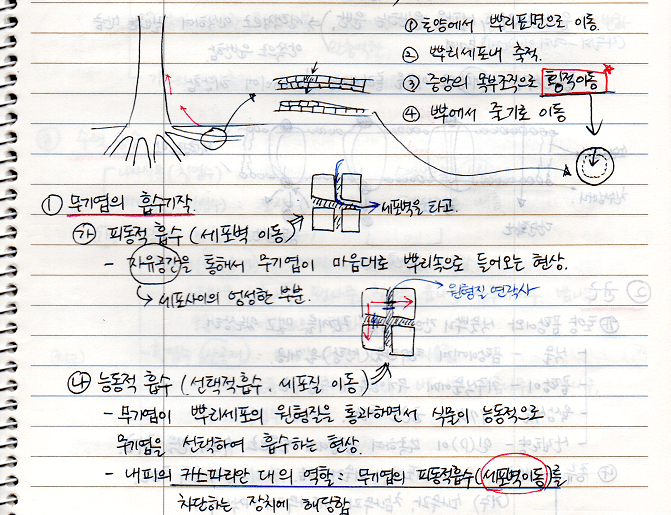 ① 토양에서 뿌리표면으로 이동.
② 뿌리세포내 축적.
③ 중앙의 목부조직으로 횡적이동
④ 뿌에서 줄기로 이동
① 무기염의 흡수기작.
세포벽을 타고.
㉮ 피동적 흡수 (세포벽 이동)
- 자유공간을 통해서 무기염이 마음대로 뿌리속으로 들어오는 현상.
→ 세포사이의 엉성한 부분.
원형질 연락사
㉯ 능동적 흡수 (선택적흡수. 세포질 이동)
- 무기염이 뿌리세포의 원형질을 통과하면서 식물이 능동적으로
무기염을 선택하여 흡수하는 현상.
- 내피의 카스파리안 대의 역할: 무기염의 피동적흡수(세포벽이동)를
차단하는 장치에 해당함